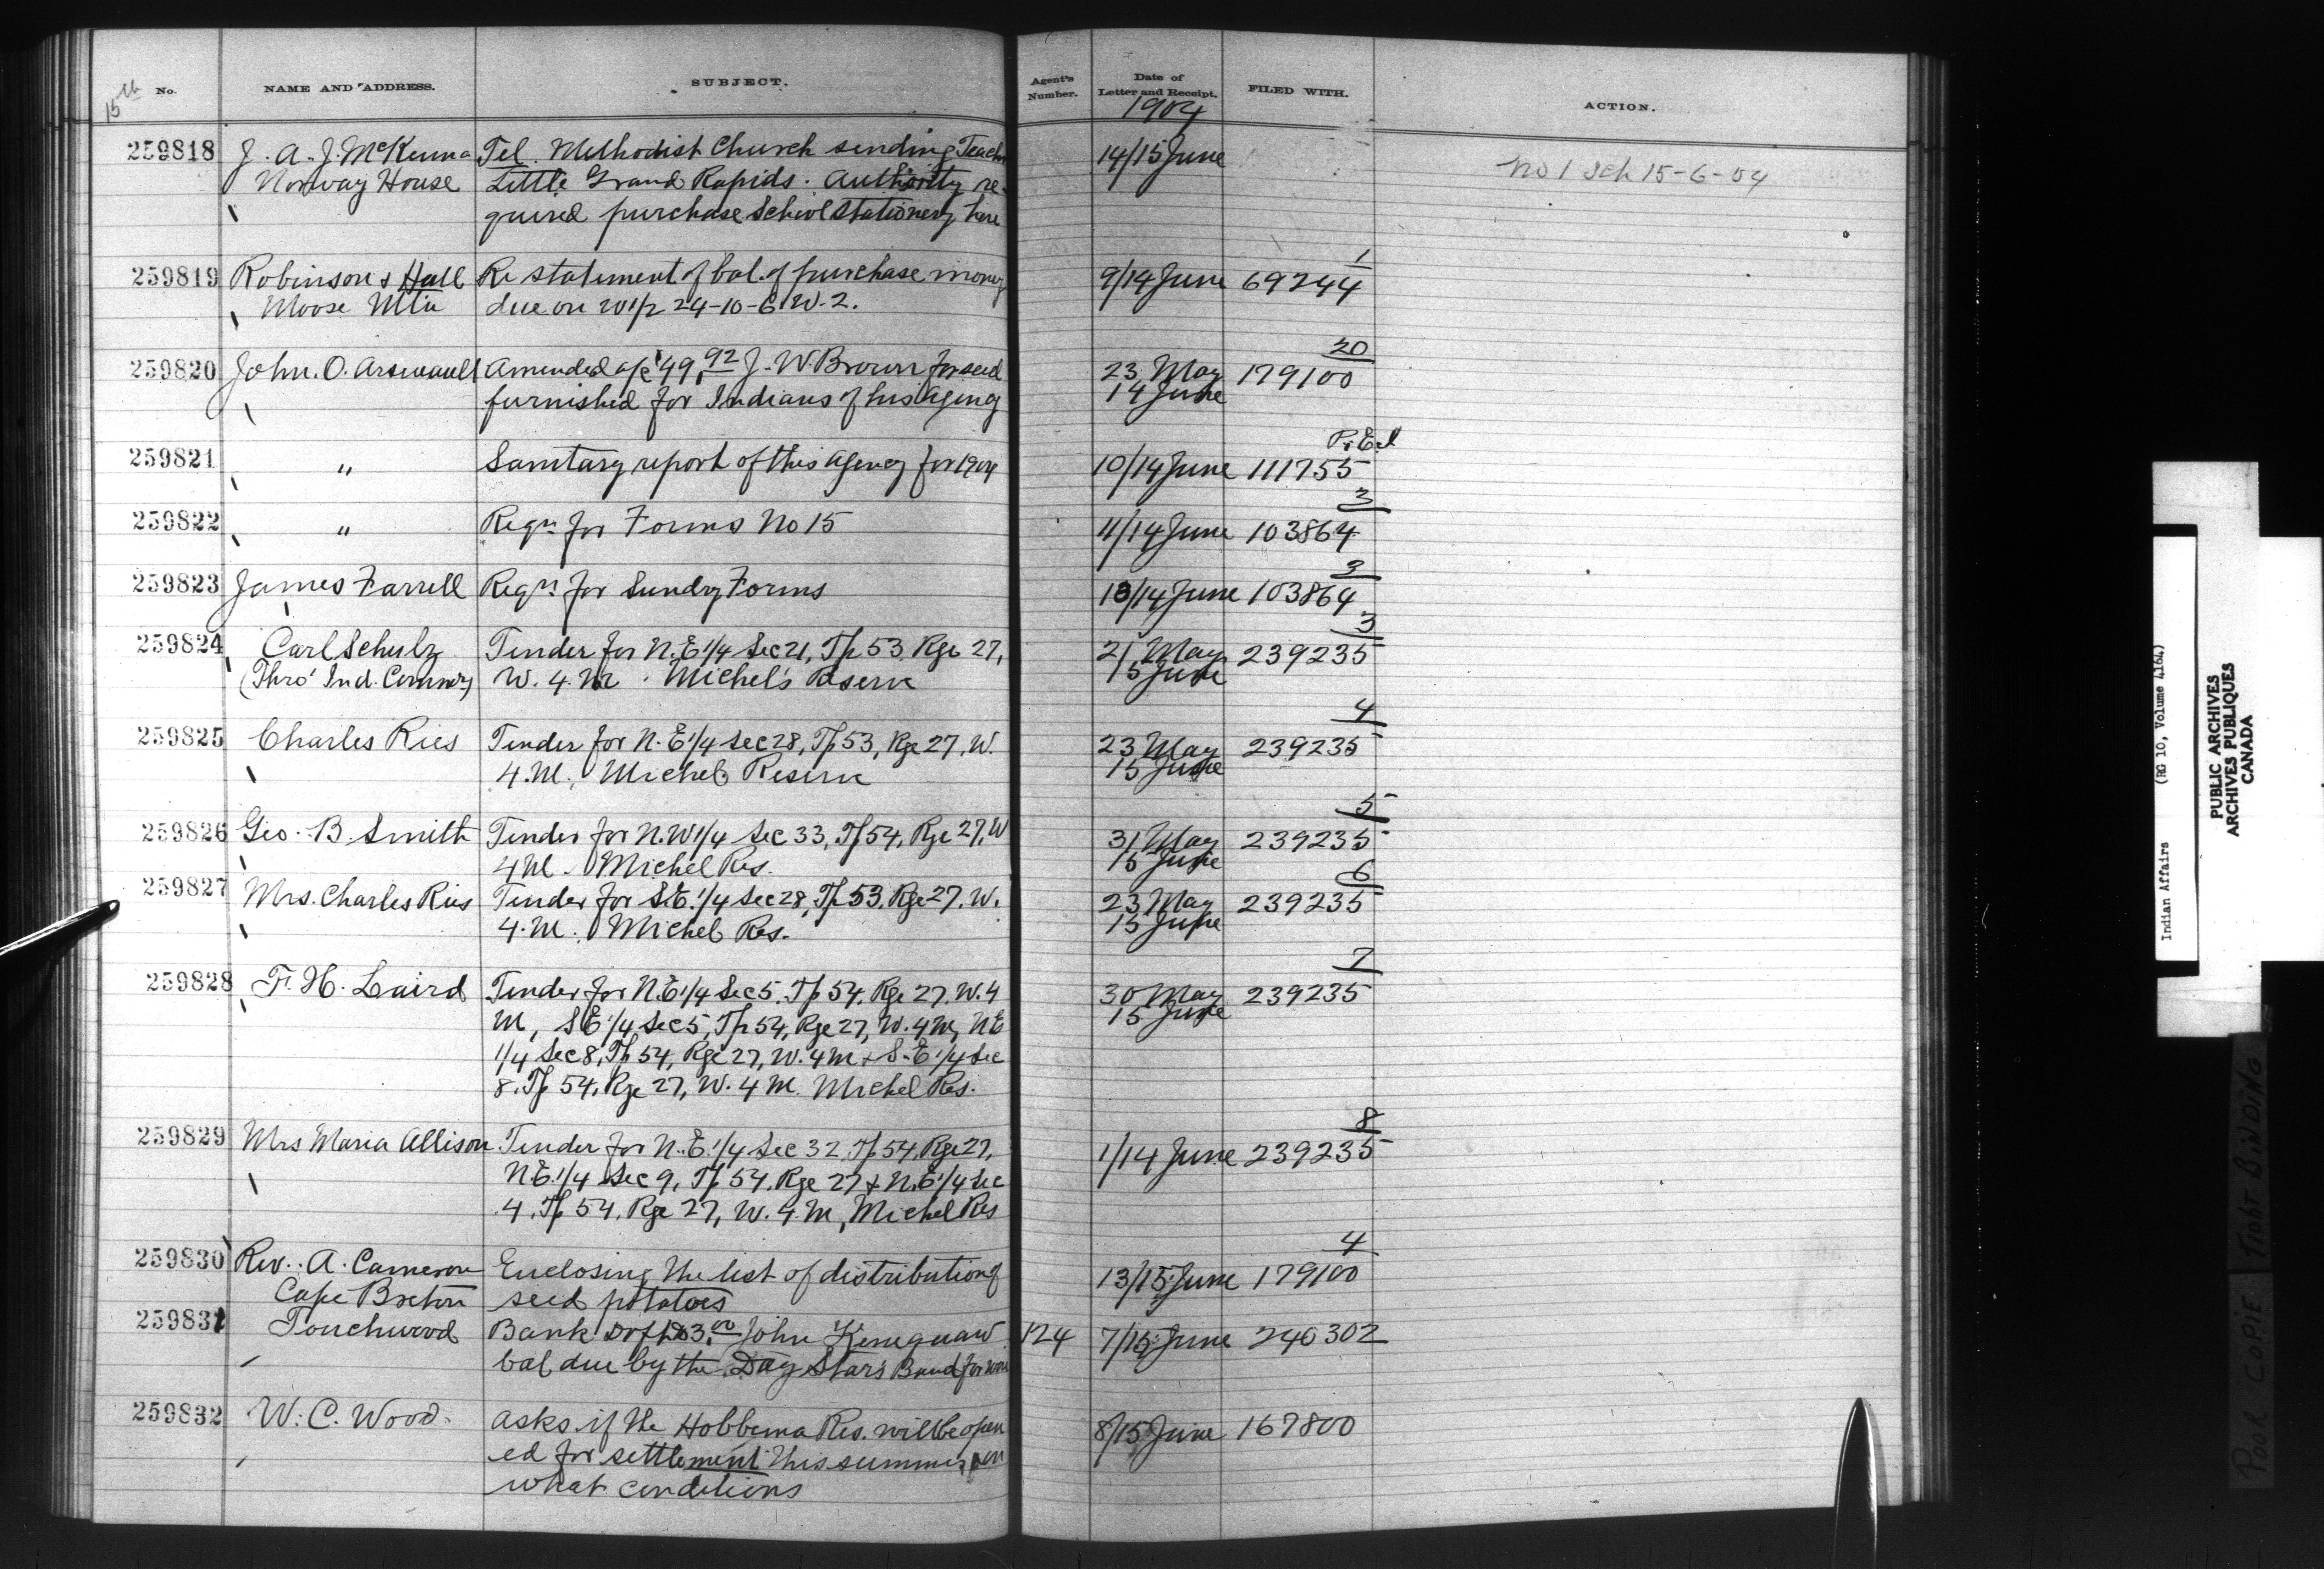 15th No. NAME AND ADDRESS. SUBJECT. Agent's Number. Date of Letter and Receipt. FILED WITH. ACTION.
1904
259818 J. A. J. McKenna Tel. Methodist Church sending Teacher 14/15 June
Norway House Little Grand Rapids. Authority re- No 1 Sch 15-6-04
quired purchase School Stationery here
259819 Robinson & Hall Re statement of bal. of purchase money 9/14 June 69244 1
Moose Mtn due on W 1/2 24-10-6 W. 2.
259820 John. O. Arsenault Amended a/c $49.92 J. W. Brown for seed 23 May 179100 20
furnished for Indians of his Agency 14 June
259821 " Sanitary report of this Agency for 1904 10/14 June 111755 P.E.I
259822 " Reqn for Forms No 15 11/14 June 103864 3
259823 James Farrell Reqn for Sundry Forms 10/14 June 103864 3
259824 Carl Schulz Tender for N.E 1/4 Sec 21, Tp 53 Rge 27, 21 May 239235 3
(Thro' Ind. Commr) W. 4. M. Michel's Reserve 15 June
259825 Charles Ries Tender for N. E 1/4 Sec 28, Tp 53, Rge 27, W. 23 May 239235 4
4. M. Michel Reserve 15 June
259826 Geo. B. Smith Tender for N.W 1/4 Sec 33, Tp 54, Rge 27, W 31 May 239235 5
4 M. Michel Res. 15 June
259827 Mrs. Charles Ries Tender for S.E. 1/4 Sec 28, Tp 53, Rge 27. W. 23 May 239235 6
4. M. Michel Res. 15 June
259828 F. H. Laird Tender for N.E 1/4 Sec 5, Tp 54, Rge 27, W. 4 30 May 239235 7
M, S E 1/4 Sec 5, Tp 54, Rge 27, W. 4 M, N E 15 June
1/4 Sec 8, Tp 54, Rge 27, W. 4 M & S. E 1/4 Sec
8, Tp 54, Rge 27, W. 4 M. Michel Res.
259829 Mrs Maria Allison Tender for N. E. 1/4 Sec 32, Tp 54, Rge 27, 1/14 June 239235 8
N.E. 1/4 Sec 9, Tp 54, Rge 27 & N.E 1/4 Sec
4, Tp 54, Rge 27, W. 4. M, Michel Res
259830 Rev. A. Cameron Enclosing the list of distribution of 13/15 June 179100 4
Cape Breton seed potatoes
259831 Touchwood Bank Dft John 124 7/15 June 240302
bal due by the Day Star's Band for
259832 W. C. Wood. Asks if the Hobbema Res. will be open 8/15 June 167800
ed for settlement this summer, on
what conditions
Indian Affairs (RG 10, Volume 4164)
PUBLIC ARCHIVES
ARCHIVES PUBLIQUES
CANADA
POOR COPIE TIGHT BINDING